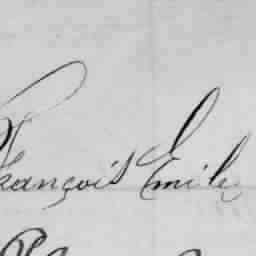 François Emile